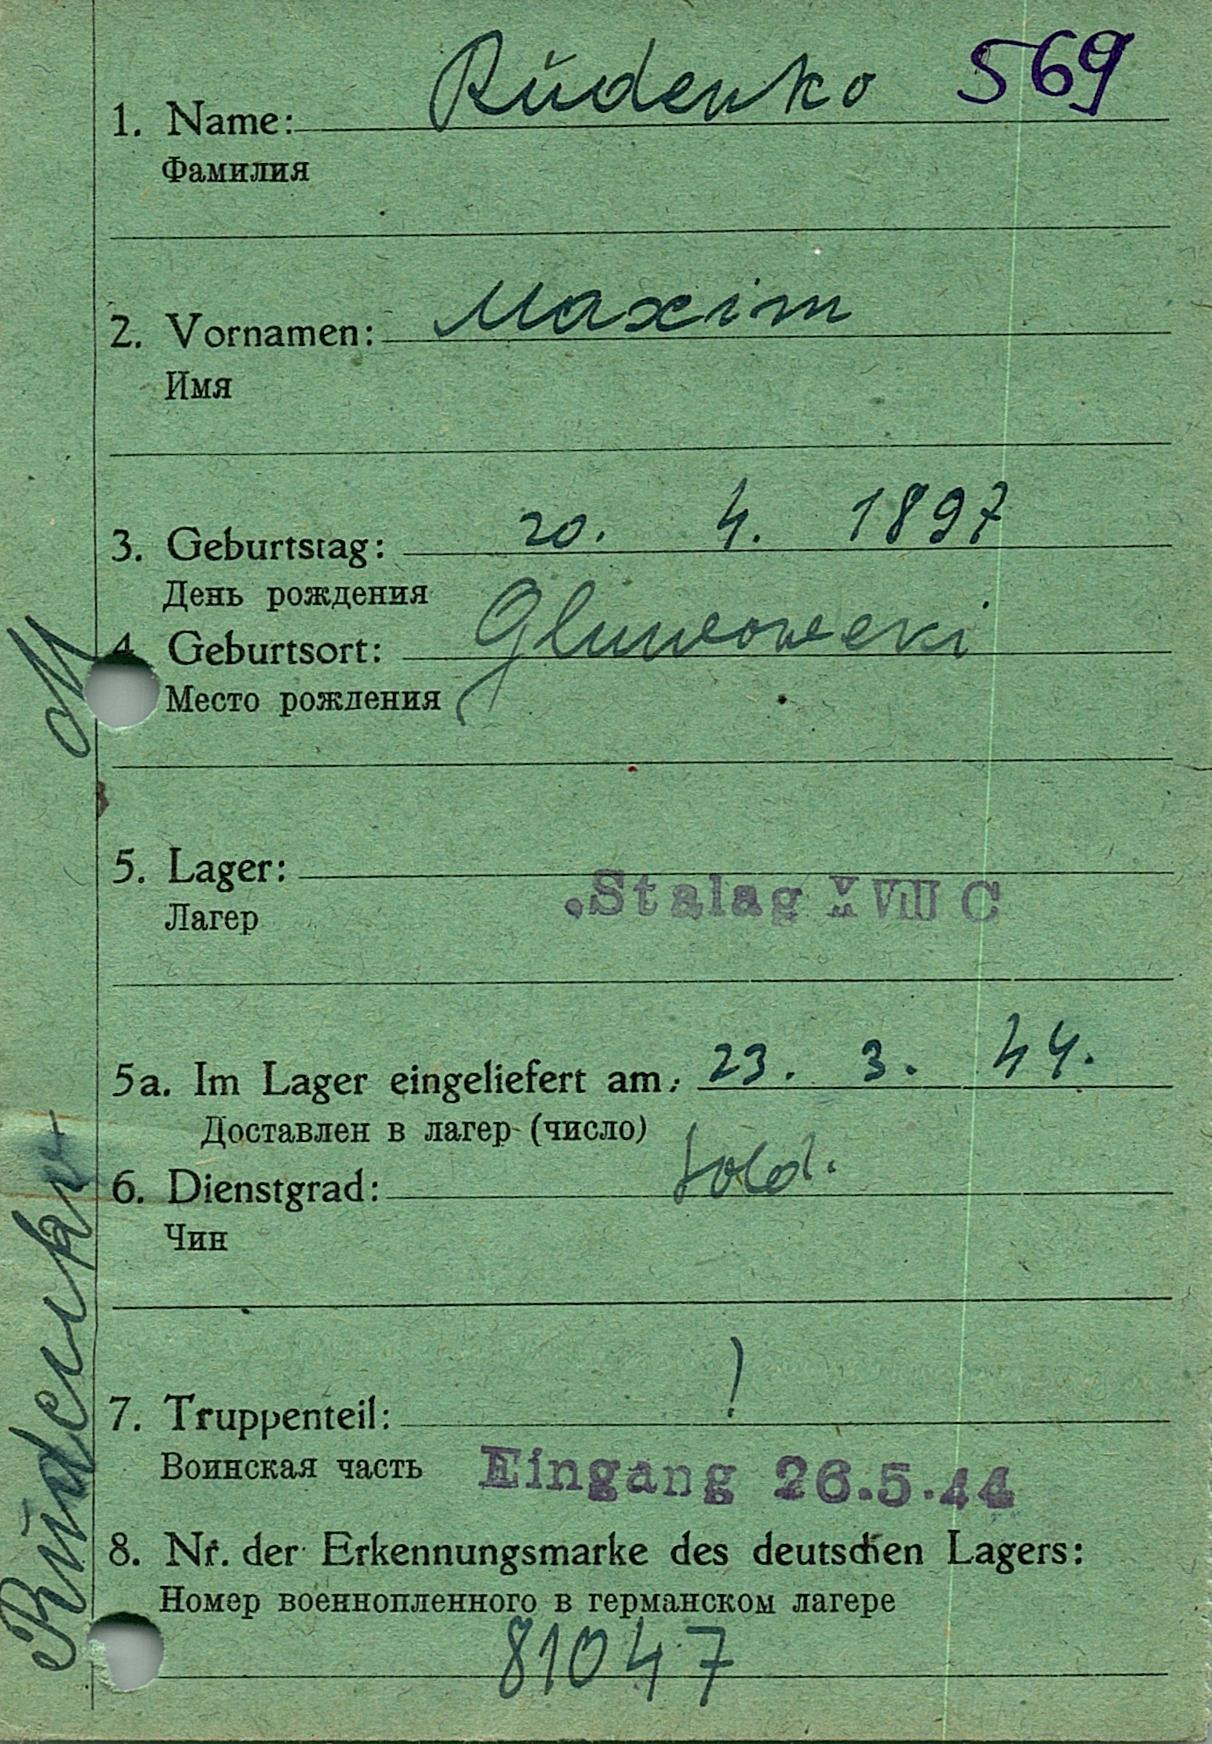 Rudenko 569
1. Name:
Фамилия
Maxim
2. Vornamen:
Имя
20. 4. 1897
3. Geburtstag:
День рождения
4. Geburtsort:
Место рождения
M
5. Lager:
Stalag XVIII C
Лагер
5a. Im Lager eingeliefert am: 23. 3. 44.
Доставлен в лагер (число)
6. Dienstgrad: Sold.
Чин
7. Truppenteil: /
Воинская часть Eingang 26.5.44
8. Nr. der Erkennungsmarke des deutschen Lagers:
Номер военнопленного в германском лагере
81047
Rudenko